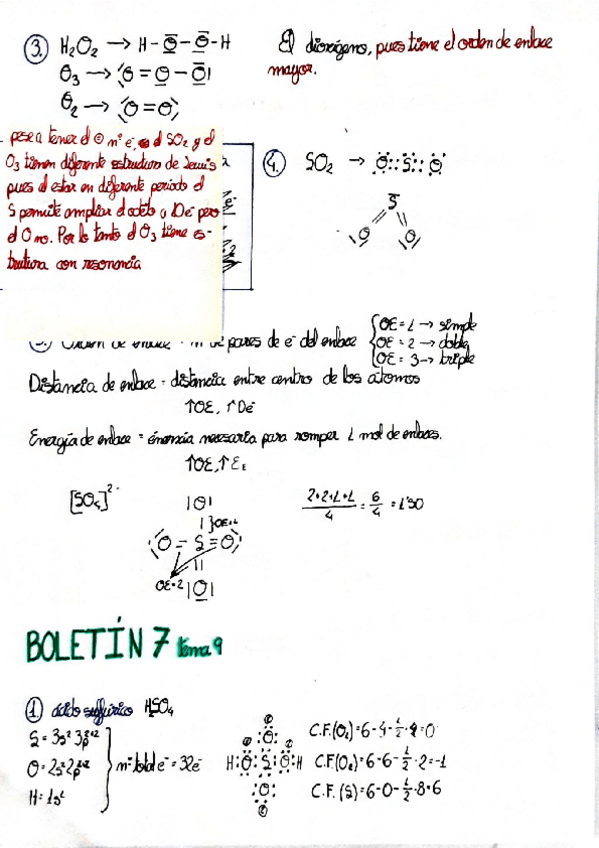 3. H₂O₂ → H-O-O-H
El dioxígeno, pues tiene el orden de enlace
mayor.
O₃ → O=O-O
O₂ → O=O
pese a tener el mº e, el SO₂ y el
O₃ tienen diferente estructura de Lewis
pues al estar en diferente periodo el
S permite ampliar el octeto a 10e⁻ pero
el O no. Por lo tanto el O₃ tiene es-
trutura con resonancia
4. SO₂ → O::S::O
S
O O
Orden de enlace = nº de pares de e⁻ del enlace
OE=1 → simple
OE=2 → doble
OE=3 → triple
Distancia de enlace = distancia entre centro de los átomos
↑OE, ↑De
Energía de enlace = énergía necesaria para romper 1 mol de enlaces.
↑OE, ↑E_E
[SO₄]²⁻
|O|
| }OE=1
O=S=O
||
OE=2 |O|
2+2+1+1/4 = 6/4 = 1'50
BOLETÍN 7 tema 9
1. ácido sulfúrico H₂SO₄
S = 3s² 3p⁴
O = 2s² 2p⁴
H = 1s¹
nº total e⁻ = 32e⁻
:O:
H:O:S:O:H
:O:
C.F.(O₁)=6-4-½·4=0
C.F.(O₂)=6-6-½·2=-1
C.F.(S)=6-0-½·8=6